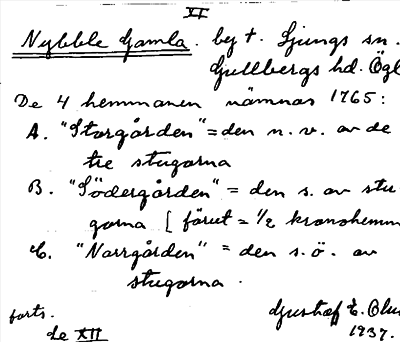 XI
Nybble Gamla. by t. Ljungs sn.
Gullbergs hd. Ögl
De 4 hemmanen nämnas 1765:
A. "Storgården" = den n. v. av de
tre stugorna
B. "Södergården" = den s. av stu
gorna [ förut = 1/2 kronohemm
C. "Norrgården" = den s. ö. av
stugorna.
forts.
de XII
Gustaf E.
1937.